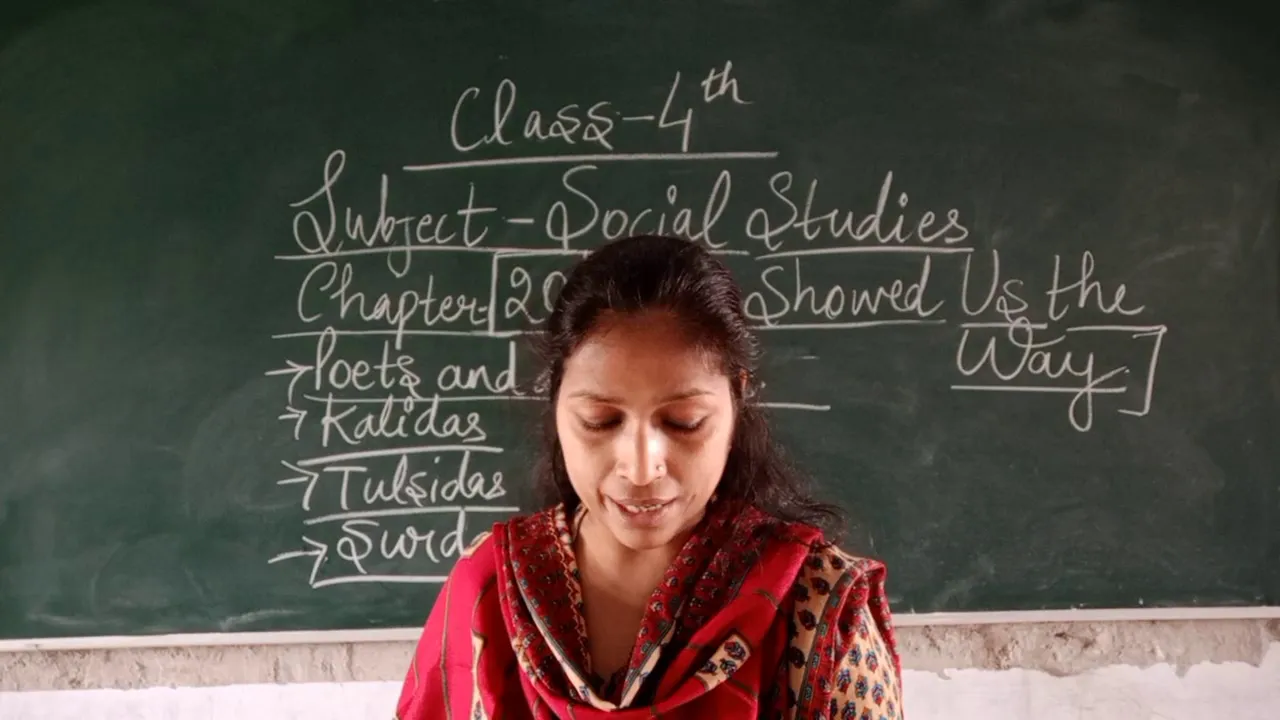 Class-4th
Subject - Social Studies
Chapter-[20 Showed Us the
Way]
→Poets and
→Kalidas
→Tulsidas